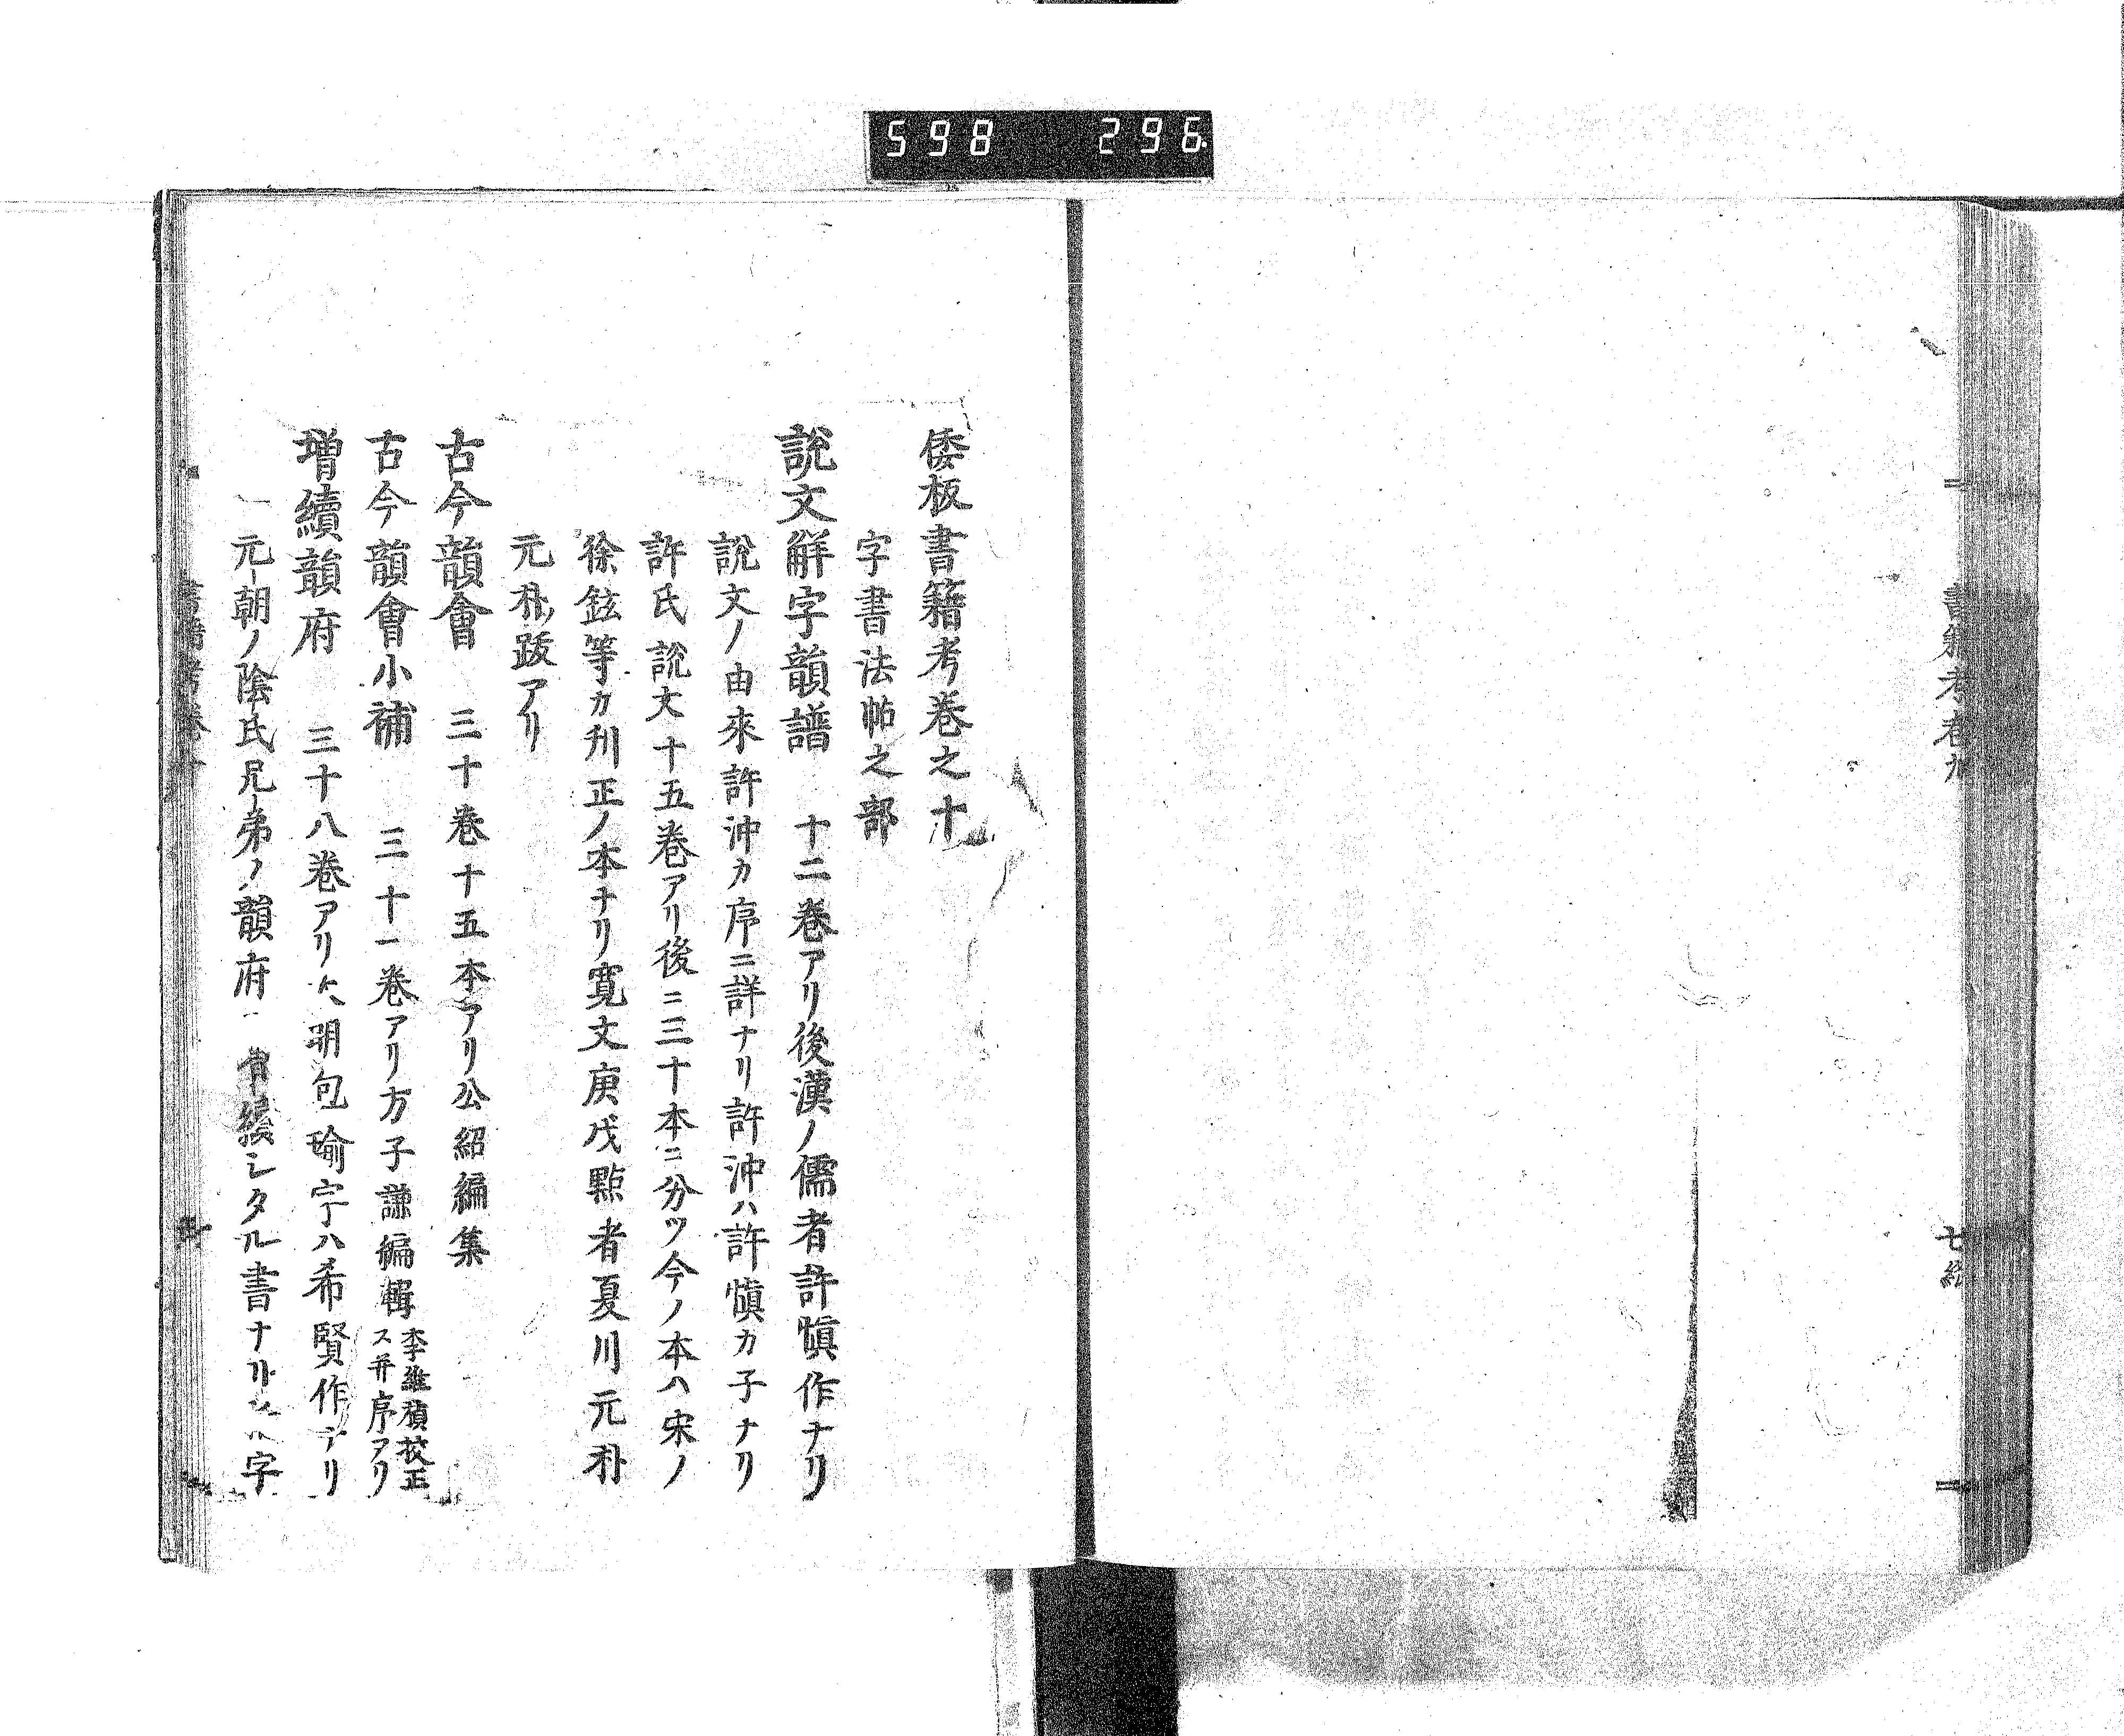 598 296
書籍考卷九
七終
倭板書籍考卷之十
字書法帖之部
說文解字韻譜 十二卷アリ後漢ノ儒者許愼作ナリ
說文ノ由來許沖カ序ニ詳ナリ許沖ハ許愼カ子ナリ
許氏說文十五卷アリ後ニ三十本ニ分ツ今ノ本ハ宋ノ
徐鉉等カ刋正ノ本ナリ寬文庚戌點者夏川元朴
元朴跋アリ
古今韻會 三十卷十五本アリ公紹編集
古今韻會小補 三十一卷アリ方子謙編輯
李維禎校正
ス并序アリ
增續韻府 三十八卷アリ大明包瑜字ハ希賢作ナリ
元朝ノ陰氏兄弟ノ韻府 續シタル書ナリ 字
書籍考卷十